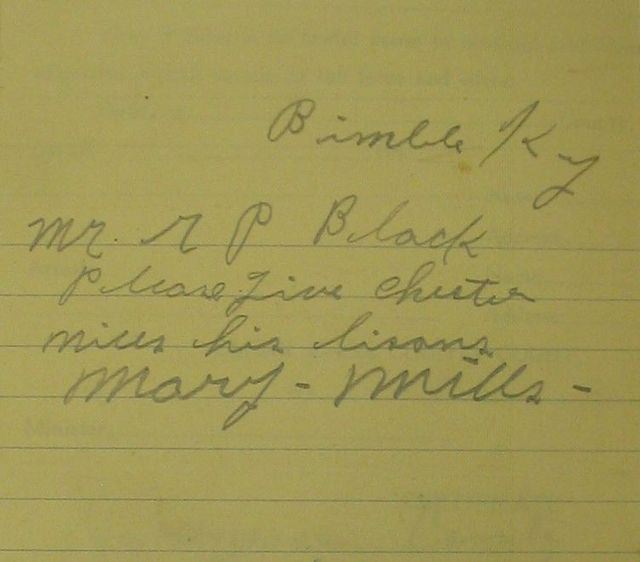 Bimble Ky
Mr. R P Black
Please give Chester
mills his lisons
Mary - Mills -